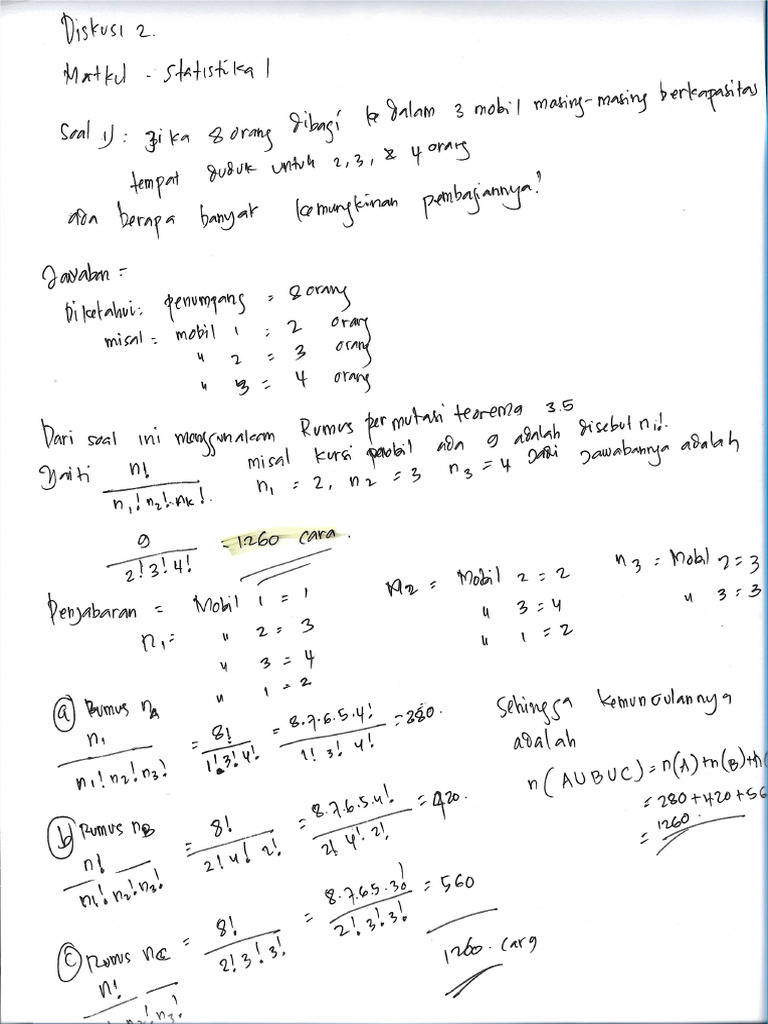 Diskusi 2.
Matkul - Statistika 1
Soal 1): Jika 8 orang dibagi ke dalam 3 mobil masing-masing berkapasitas
tempat duduk untuk 2, 3, & 4 orang
ada berapa banyak kemungkinan pembagiannya?
Jawaban =
Diketahui: penumpang = 8 orang
misal = mobil 1 : 2 orang
" 2 = 3 orang
" 3 = 4 orang
Dari soal ini menggunakan Rumus permutasi teorema 3.5
Yaiti n! / n1! n2! .. nk! .
misal kursi mobil ada 9 adalah disebut n!.
n1 = 2, n2 = 3 n3 = 4 Jawabannya adalah
9 / 2! 3! 4! = 1260 cara.
Penjabaran = Mobil 1 = 1
n1 = " 2 = 3
" 3 = 4
" 1 = 2
n2 = Mobil 2 = 2
" 3 = 4
" 1 = 2
n3 = Mobil 2 = 3
" 3 = 3
(a) Rumus nA
n1 / n1! n2! n3! = 8! / 1! 3! 4! = 8.7.6.5.4! / 1! 3! 4! = 280.
(b) Rumus nB
n! / n1! n2! n3! = 8! / 2! 4! 2! = 8.7.6.5.4! / 2! 4! 2! = 420.
(c) Rumus nC
n! / n2! n3! = 8! / 2! 3! 3! = 8.7.6.5.3! / 2! 3! 3! = 560
1260. cara
Sehingga kemunculannya
adalah
n(AUBUC) = n(A)+n(B)+
= 280 + 420 + 56
= 1260.